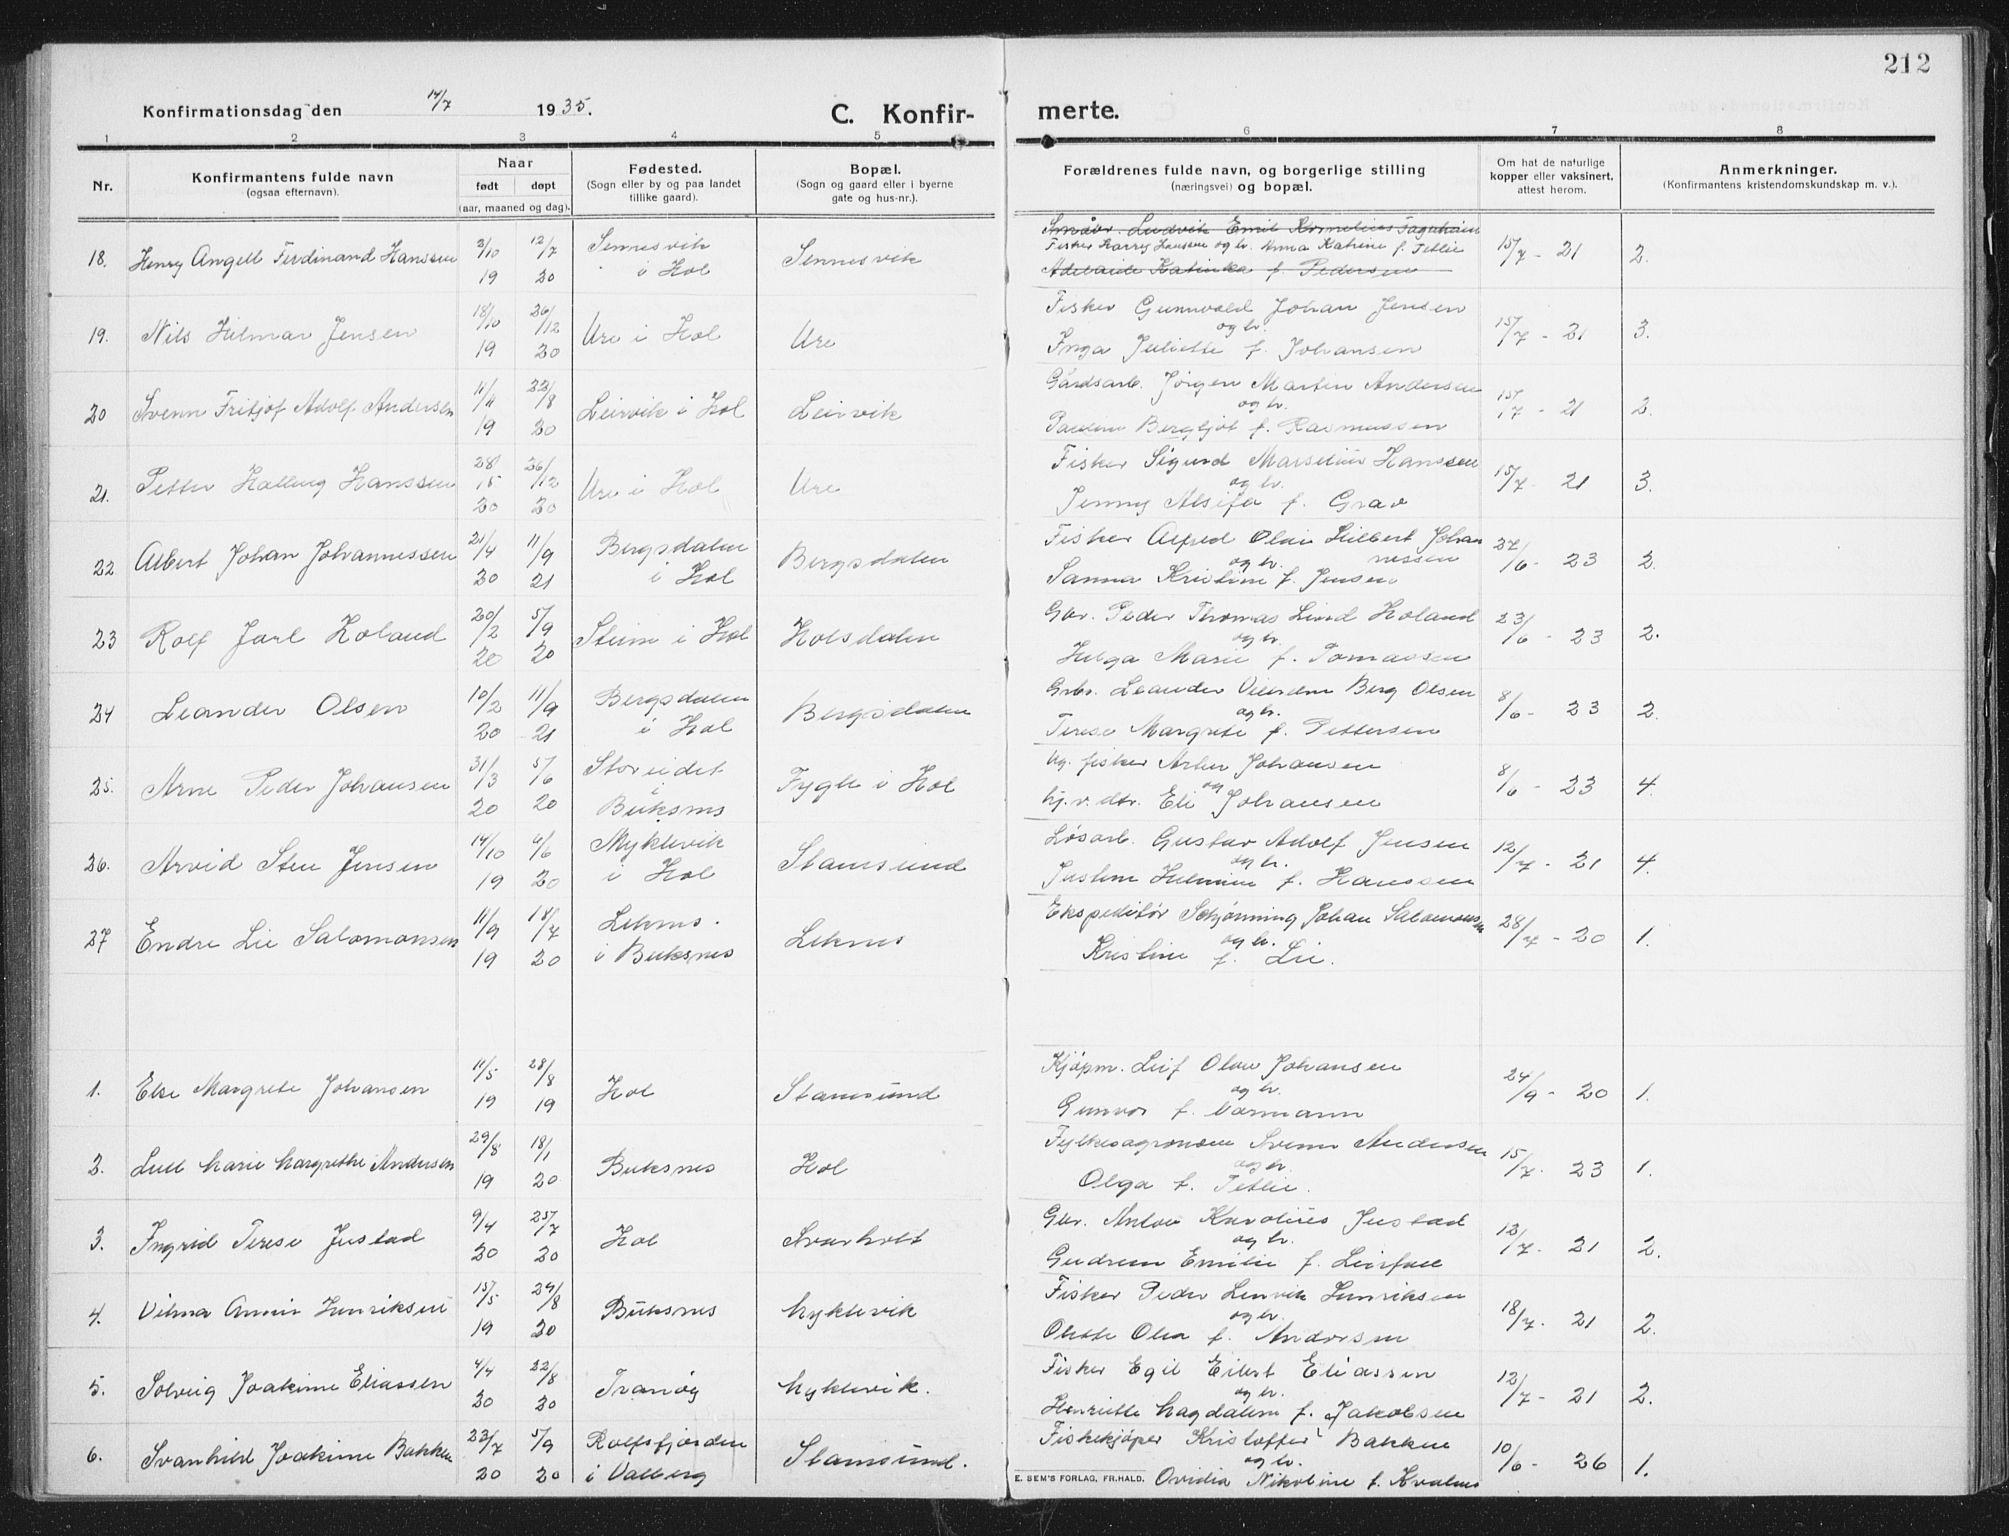 212
Konfirmationsdag den 14/7 1935.
C. Konfir-
merte.
1 2 3 4 5 6 7 8
Nr.
Konfirmantens fulde navn
(ogsaa efternavn).
Naar
født døpt
(aar, maaned og dag).
Fødested.
(Sogn eller by og paa landet
tillike gaard).
Bopæl.
(Sogn og gaard eller i byerne
gate og hus-nr.).
Forældrenes fulde navn, og borgerlige stilling
(næringsvei) og bopæl.
Om hat de naturlige
kopper eller vaksinert,
attest herom.
Anmerkninger.
(Konfirmantens kristendomskundskap m. v.).
Småbr. Ludvik Emil Kornelius
18. Henry Angell Ferdinand Hanssen 2/10 19 12/7 20 Sennesvik i Hol Sennesvik Fisker Harry Hanssen og h. Anna Katrine f. Tetlie 15/7 - 21 2.
Adelaide Katinka f. Pedersen
19. Nils Hilmar Jensen 18/10 19 26/12 20 Ure i Hol Ure Fisker Gunnvald Johan Jensen
og h.
Inga Juliette f. Johansen 15/7 - 21 3.
20 Svenn Fritjof Adolf Andersen 11/4 19 22/8 20 Leirvik i Hol Leirvik Gårdsarb. Jørgen Martin Andersen
og h.
Bergljot f. Rasmussen 15/7 - 21 2.
21. Petter Hanssen 28/5 20 26/12 20 Ure i Hol Ure Fisker Sigurd Marselius Hanssen
og h.
Jenny Alsifa f. Grav 15/7 - 21 3.
22 Albert Johan Johannessen 21/4 20 11/9 21 Bergsdalen i Hol Bergsdalen Fisker Alfred Olai Johan
nessen
og h.
Sanna Kristine f. Jensen 27/6 - 23 2.
23 Rolf Jarl Holand 20/2 20 5/9 20 Steine i Hol Holsdalen Gbr. Peder Thomas Lind Holand
og h.
Helga Marie f. Tomassen 23/6 - 23 2.
24 Leander Olsen 10/2 20 11/9 21 Bergsdalen i Hol Bergsdalen Gbr. Leander Berg Olsen
og h.
Terese Margrete f. Pettersen 8/6 - 23 2.
25. Arne Peder Johansen 31/3 20 5/6 20 Storeidet Buksnes Fygle i Hol Ug. fisker Johansen
og
hj.v. dtr. Eli Johansen 8/6 - 23 4.
26. Arvid Sten Jensen 14/10 19 6/6 20 Myklevik i Hol Stamsund Løsarb. Gustav Adolf Jensen
og h.
Justine Helmine f. Hanssen 12/7 - 21 4.
27 Endre Lie Salomonsen 11/9 19 18/7 20 Leknes. i Buksnes Leknes Ekspeditør Schjønning Johan Salomonsen
og h.
Kristine f. Lie. 28/7 - 20 1.
1. Else Margrete Johansen 11/5 19 28/8 19 Hol Stamsund Kjøpm. Leif Olav Johansen
og h.
Gunvor f. Normann 24/9 - 20 1.
2. Lull Marie Margrethe Andersen 29/8 19 18/1 20 Buksnes Hol Fylkesagronom Svenn Andersen
og h.
Olga f. Tetlie. 15/7. 23 1.
3. Ingrid Terese Justad 9/4 20 25/7 20 Hol Svarholt Gbr. Anton Karolius Justad
og h.
Gudrun Emilie f. Leirfall 12/7. 21 2.
4. Vilma Annie Henriksen 15/5 19 29/8 20 Buksnes Myklevik Fisker Peder Lenvik Henriksen
og h.
Olea f. Andersen 18/7. 21 2.
5. Solveig Joakime Eliassen 4/4 20 22/8 20 Tranøy Myklevik. Fisker Egil Eilert Eliassen
og h.
Henriette Magdalene f. Jakobsen 12/7 - 21 2.
6. Svanhild Joakime Bakken 23/7 20 5/9 20 Rolfsfjorden i Valberg Stamsund. Fiskekjøper Kristoffer Bakken
og h.
Ovidia Nikoline f. Kvalnes 10/6 - 26 1.
E. SEM'S FORLAG, FR.HALD.